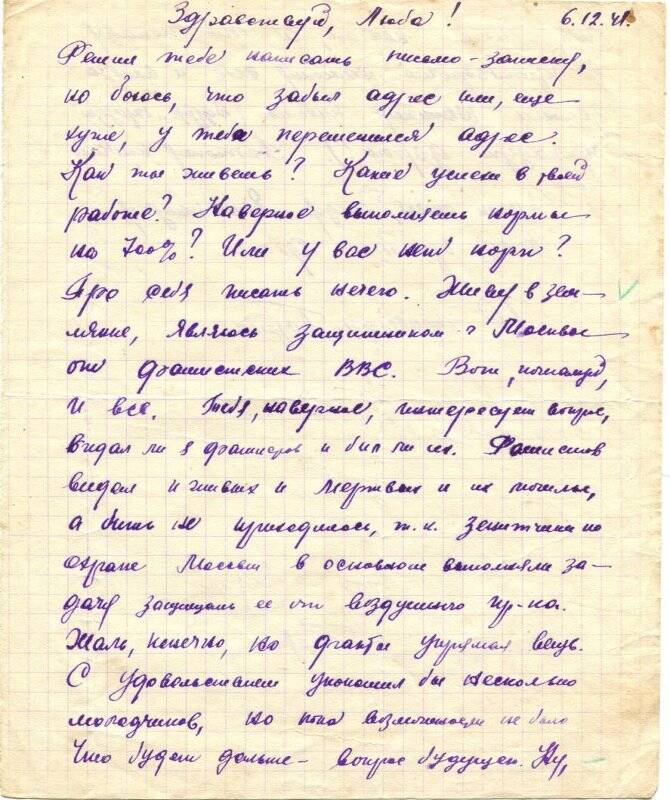 Здравствуй, Люба! 6.12.41.
Решил тебе написать письмо-записку,
но боюсь, что забыл адрес или, еще
хуже, у тебя переменился адрес.
Как ты живешь? Какие успехи в твоей
работе? Наверное выполняешь нормы
на 700%? Или у вас нет норм?
Про себя писать нечего. Живу в зем-
лянке, являюсь защитником г Москвы
от фашистских ВВС. Вот, пожалуй,
и все. Тебя, наверное, интересует вопрос,
видал ли я фашистов и бил ли их. Фашистов
видал и живых и мертвых и их
а бить не приходилось, т.к. зенитчики по
охране Москвы в основном выполняли за-
дачу защищать ее от воздушного пр-ка.
Жаль, конечно, но факты упрямая вещь.
С удовольствием укокошил бы несколько
молодчиков, но пока возможности не было
Что будет дальше - вопрос будущего. Ну,